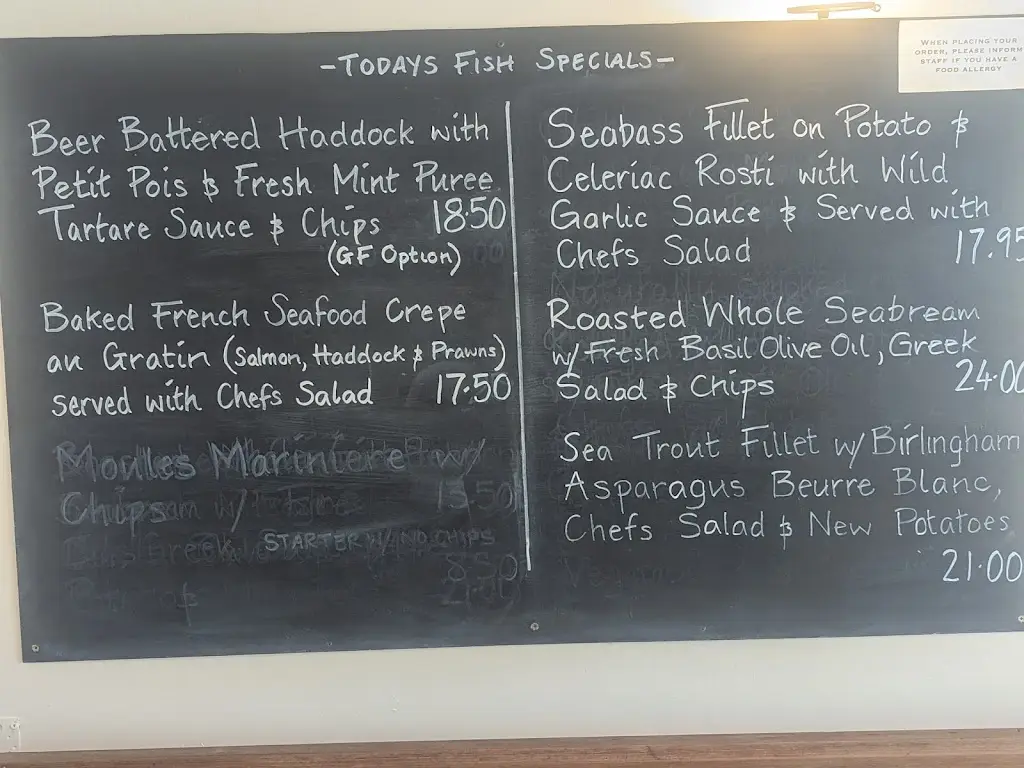 -TODAYS FISH SPECIALS-
WHEN PLACING YOUR
ORDER, PLEASE INFORM
STAFF IF YOU HAVE A
FOOD ALLERGY
Beer Battered Haddock with
Petit Pois & Fresh Mint Puree
Tartare Sauce & Chips 18.50
(GF Option)
Baked French Seafood Crepe
au Gratin (Salmon, Haddock & Prawns)
served with Chefs Salad 17.50
Moules Mariniere w/
Chips 15.50
STARTER W/ NO CHIPS
8.50
Seabass Fillet on Potato &
Celeriac Rosti with Wild
Garlic Sauce & Served with
Chefs Salad 17.95
Roasted Whole Seabream
w/ Fresh Basil Olive Oil, Greek
Salad & Chips 24.00
Sea Trout Fillet w/ Birlingham
Asparagus Beurre Blanc,
Chefs Salad & New Potatoes
21.00